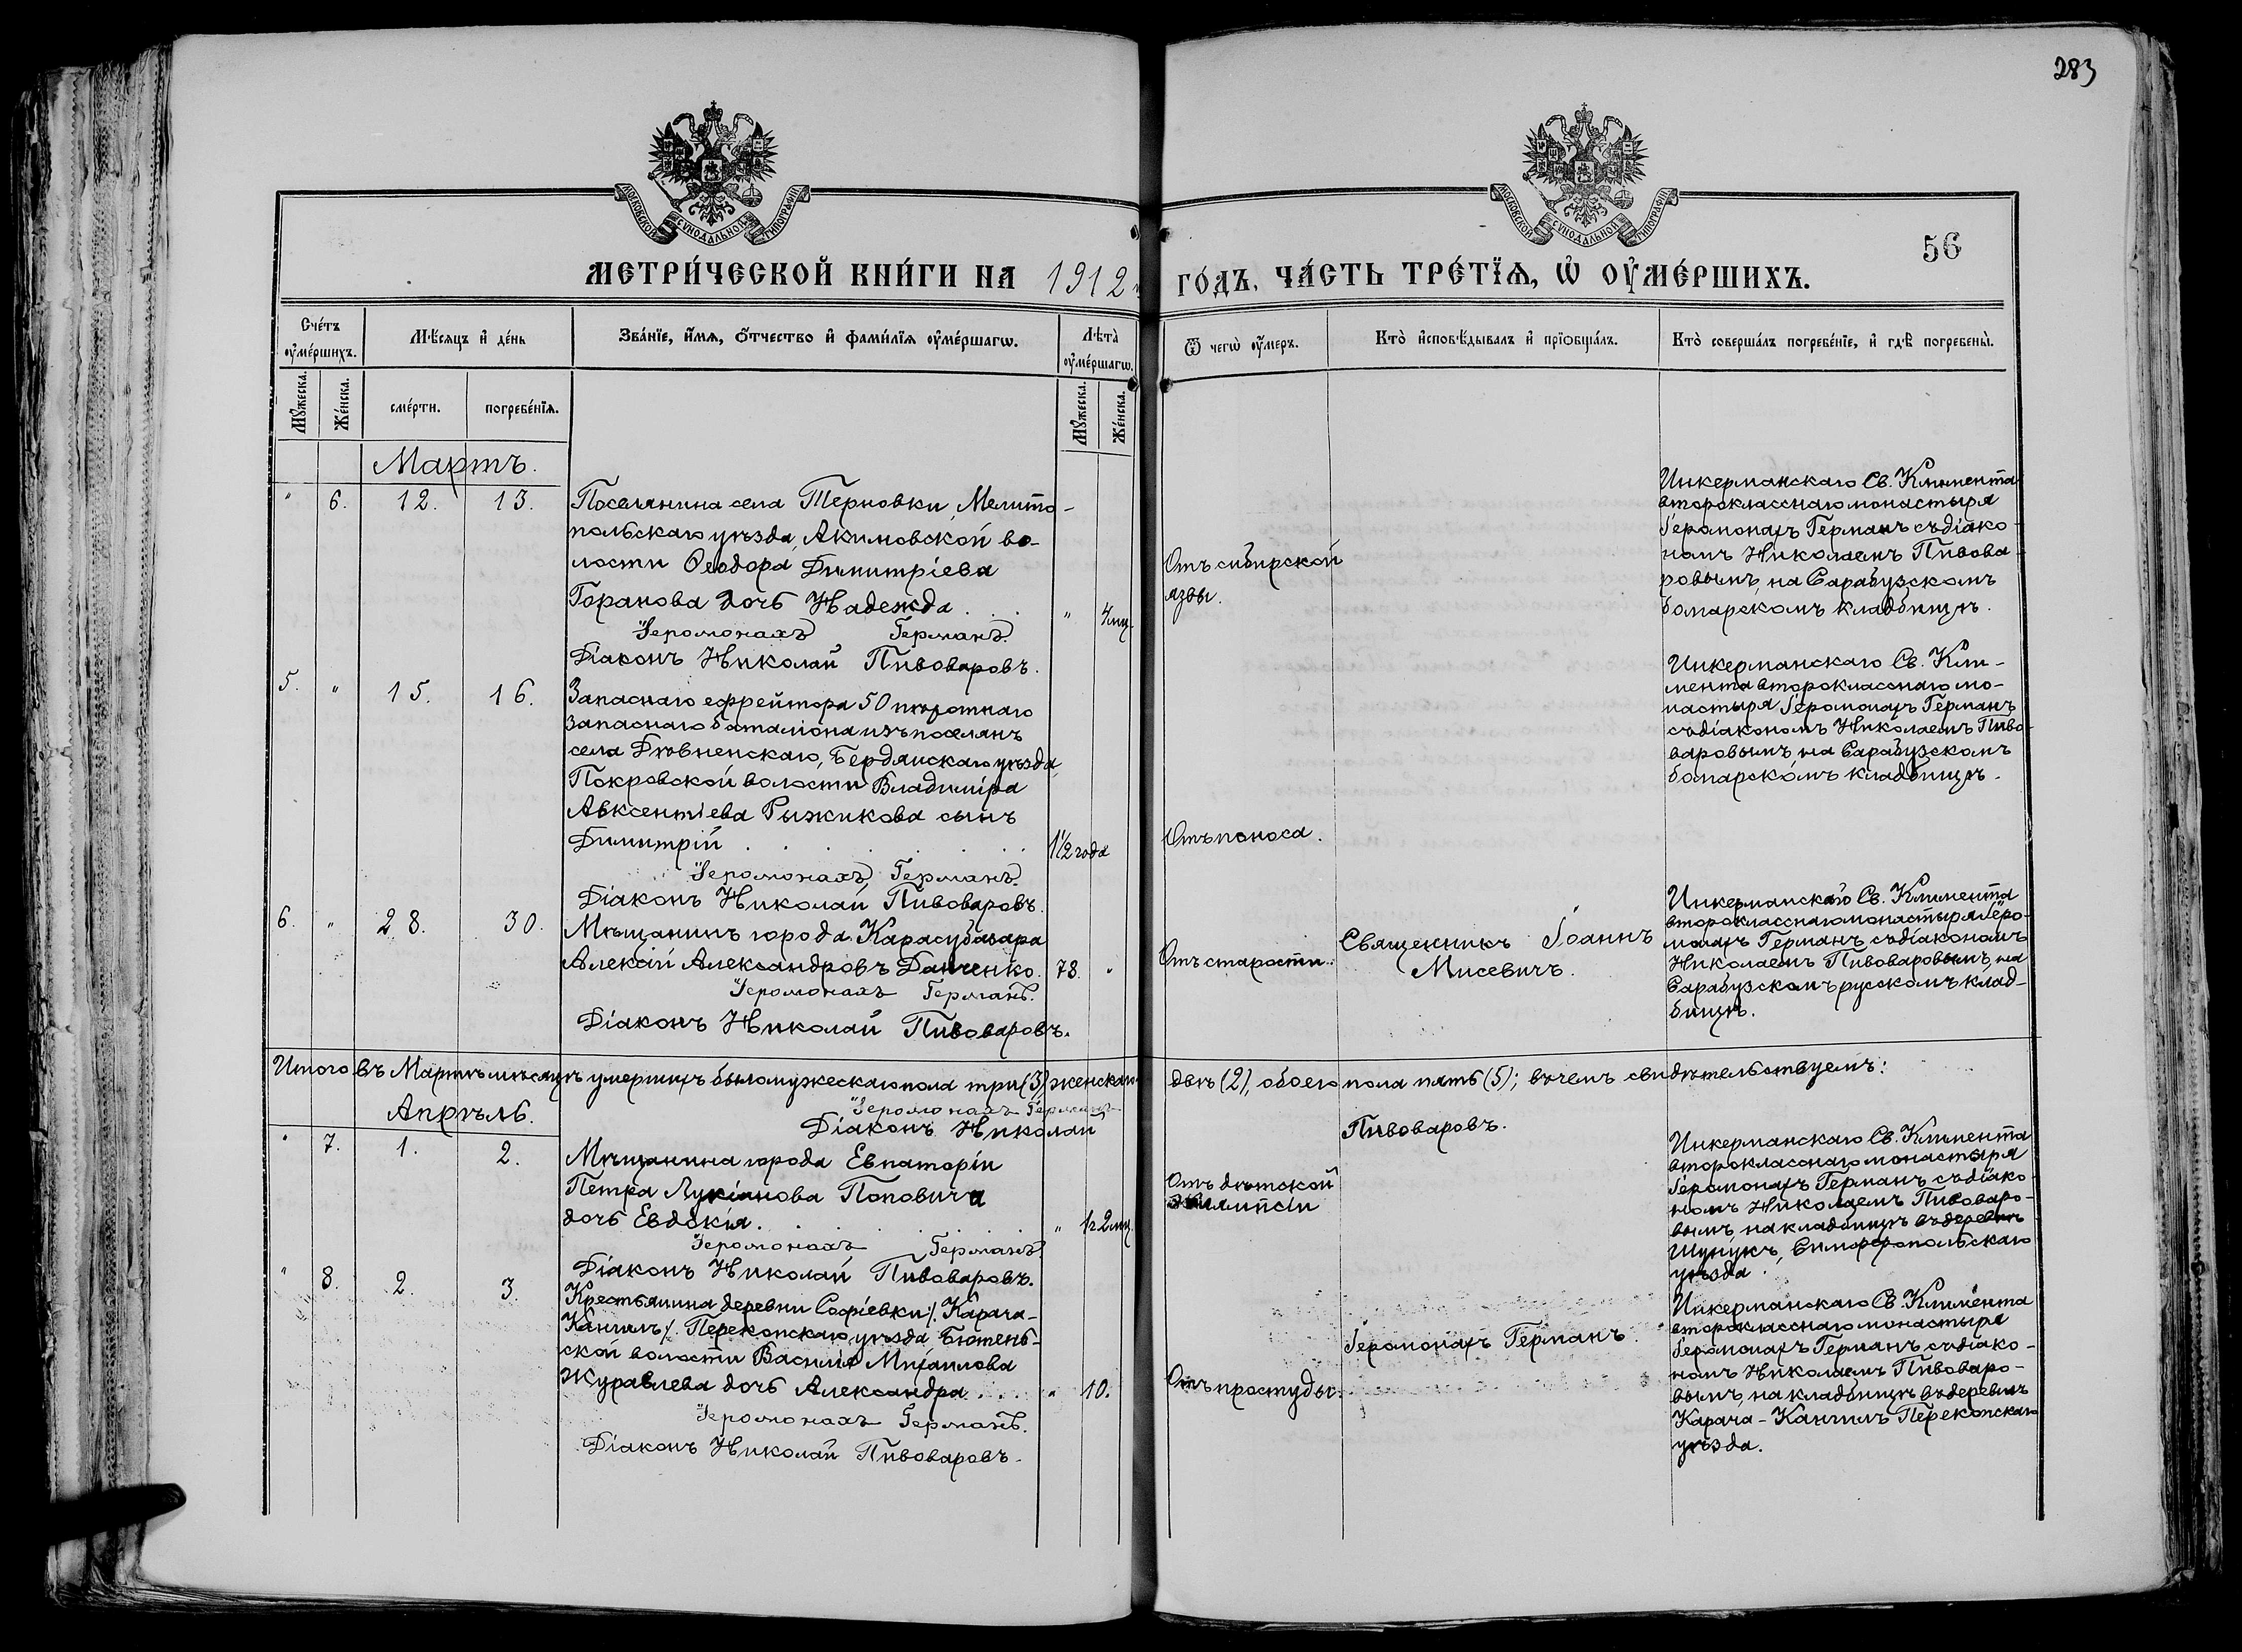 283
МОСКОВСКОЙ СУНОДАЛЬНОЙ ТИПОГРАФІИ
МОСКОВСКОЙ СУНОДАЛЬНОЙ ТИПОГРАФІИ
56
МЕТРИ́ЧЕСКОЙ КНИ́ГИ НА 1912 ГО́ДЪ, ЧА́СТЬ ТРЕ́ТЇѦ, Ѽ ОУ҆МЕ́РШИХЪ.
Сче́тъ оу҆ме́ршихъ.
Мѣ́сяцъ и҆ де́нь
Зва́нїе, и҆́мѧ, ѻ҆́тчество и҆ фами́лїѧ оу҆ме́ршагѡ.
Лѣта̀ оу҆ме́ршагѡ.
Ѿ чегѡ̀ оу҆́меръ.
Кто̀ и҆сповѣ́дывалъ и҆ прїѡбща́лъ.
Кто̀ соверша́лъ погребе́нїе, и҆ гдѣ̀ погребены̀.
Мꙋ́жеска.
Же́нска.
сме́рти.
погребе́нїѧ.
Мꙋ́жеска.
Же́нска.
Мартъ.
" 6. 12. 13.
Поселянина села Терновки, Мелито-
польскаго уѣзда, Акимовской во-
лости Ѳеодора Димитріева
Горанова дочь Надежда . . . " 4 мц.
Іеромонахъ Германъ.
Діаконъ Николай Пивоваровъ.
Отъ сибирской
язвы.
Инкерманскаго Св. Климента
второкласснаго монастыря
Іеромонахъ Германъ съ діако-
номъ Николаемъ Пивова-
ровымъ, на Сарабузскомъ
болгарскомъ кладбищѣ.
5. " 15. 16.
Запаснаго ефрейтора 50 пѣхотнаго
запаснаго баталіона изъ поселянъ
села Дювненскаго, Бердянскаго уѣзда,
Покровской волости Владиміра
Авксентіева Рыжикова сынъ
Димитрій . . . . . 1 1/2 года
Іеромонахъ Германъ.
Діаконъ Николай Пивоваровъ.
Отъ поноса.
Инкерманскаго Св. Кли-
мента второкласснаго мо-
настыря Іеромонахъ Германъ
съ діакономъ Николаемъ Пиво-
варовымъ, на Сарабузскомъ
болгарскомъ кладбищѣ.
6. " 28. 30.
Мѣщанинъ города Карасубазара
Алексій Александровъ Данченко. 78. "
Іеромонахъ Германъ.
Діаконъ Николай Пивоваровъ.
Отъ старости.
Священникъ Іоаннъ
Мисевичъ.
Инкерманскаго Св. Климента
второкласснаго монастыря Іеро-
монахъ Германъ съ діакономъ
Николаемъ Пивоваровымъ, на
Сарабузскомъ русскомъ клад-
бищѣ.
Итого въ Мартѣ мѣсяцѣ умершихъ было мужескаго пола три (3), женскаго двѣ (2), обоего пола пять (5); въ чемъ свидѣтельствуемъ:
Іеромонахъ Германъ
Діаконъ Николай Пивоваровъ.
Апрѣль.
" 7. 1. 2.
Мѣщанина города Евпаторіи
Петра Лукіанова Поповича
дочь Евдокія. . . . . . " 1 г. 2 мц.
Іеромонахъ Германъ.
Діаконъ Николай Пивоваровъ.
Отъ дѣтской
эклипсіи
Инкерманскаго Св. Климента
второкласснаго монастыря
Іеромонахъ Германъ съ діако-
номъ Николаемъ Пивоваро-
вымъ, на кладбищѣ въ деревнѣ
Симферопольскаго
уѣзда.
" 8. 2. 3.
Крестьянина деревни Софіевки /: Карача-
Кангилъ :/ Перекопскаго уѣзда Бютень-
ской волости Василія Михаилова
Журавлева дочь Александра . . . . " 10.
Іеромонахъ Германъ.
Діаконъ Николай Пивоваровъ.
Отъ простуды.
Іеромонахъ Германъ.
Инкерманскаго Св. Климента
второкласснаго монастыря
Іеромонахъ Германъ съ діако-
номъ Николаемъ Пивоваро-
вымъ, на кладбищѣ въ деревнѣ
Карача-Кангилъ Перекопскаго
уѣзда.